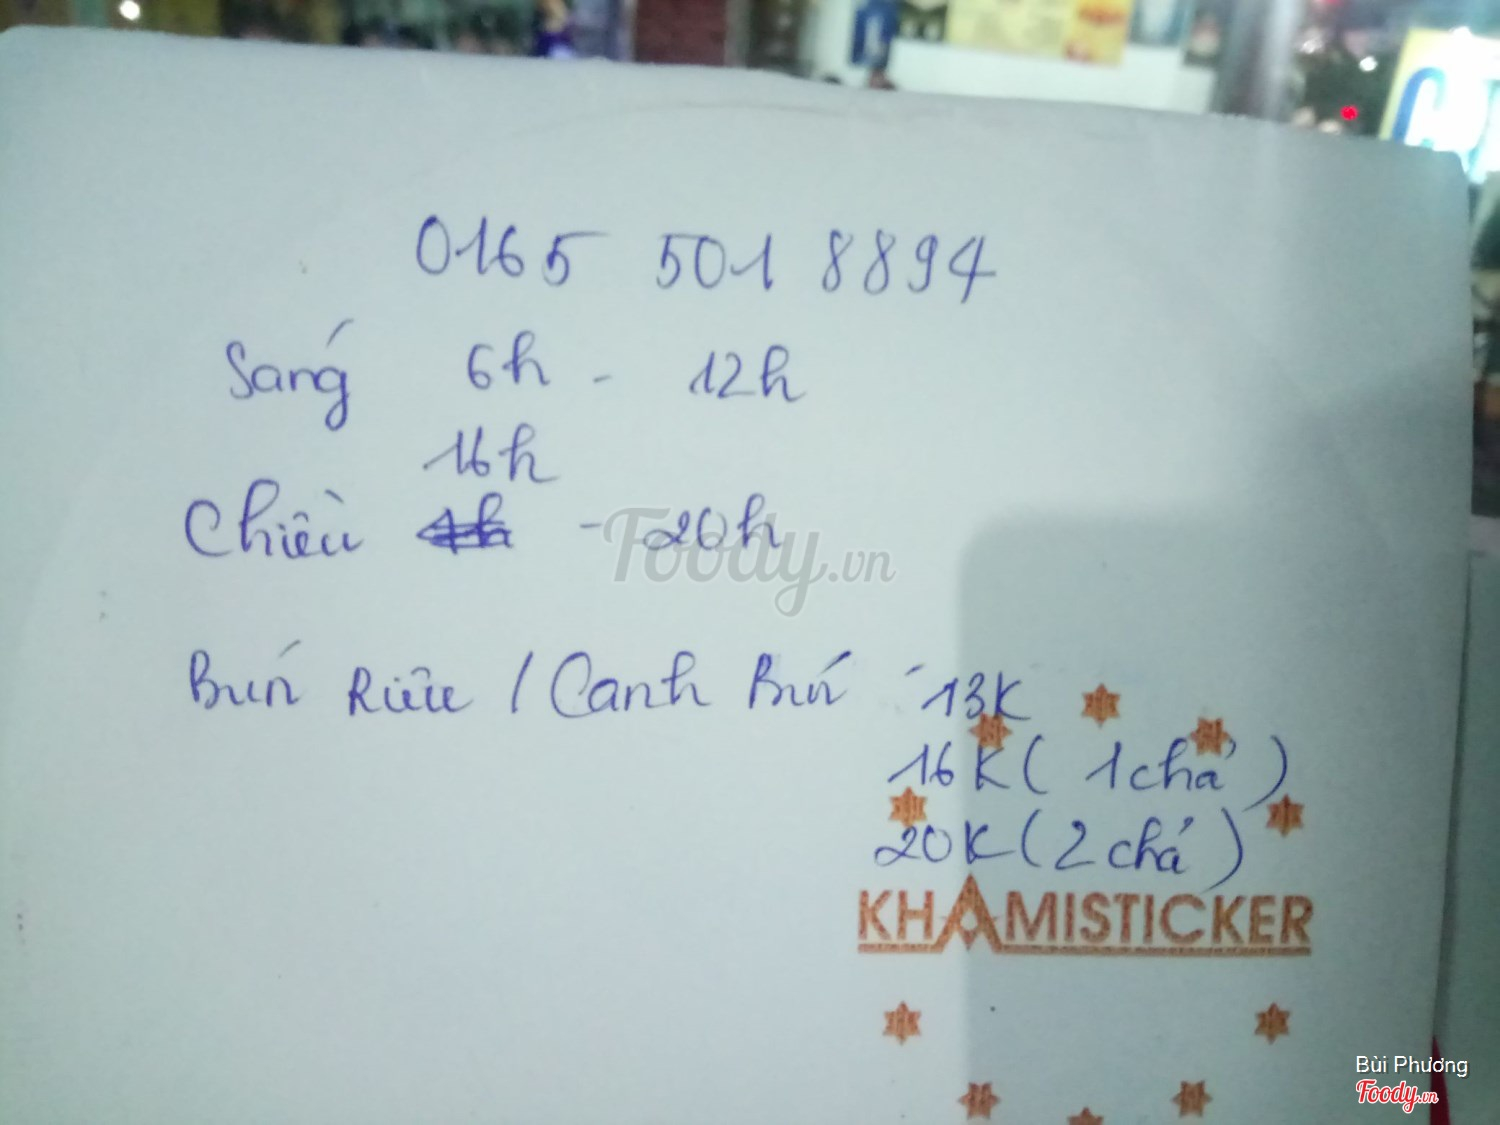 0165 501 8894
Sáng 6h - 12h
16h
Chiều - 20h
Bún Riêu / Canh Bún 13K
16K ( 1 chả )
20K ( 2 chả )
KHAMISTICKER
Foody.vn
Bùi Phương
Foody.vn